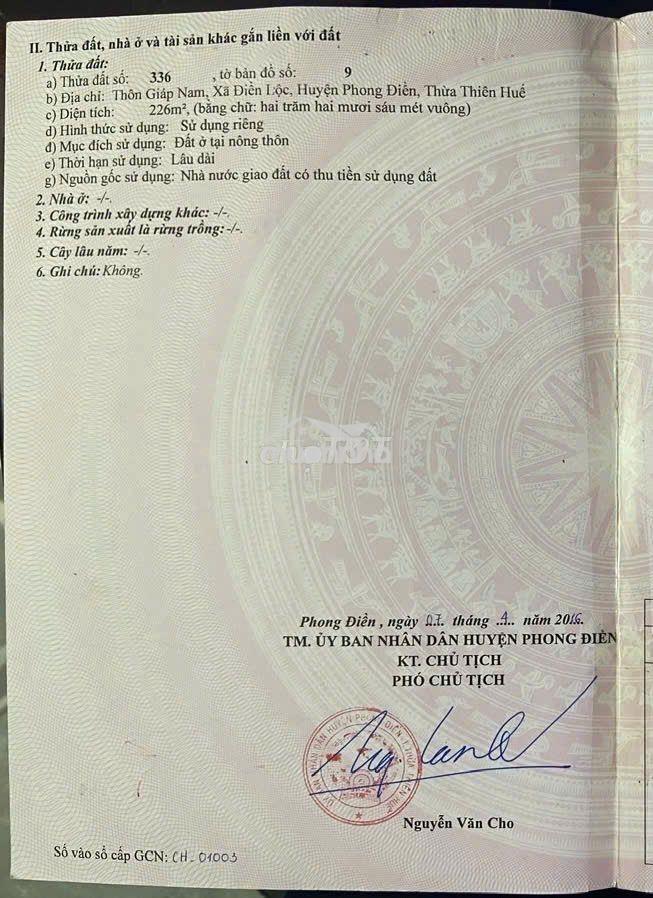 II. Thửa đất, nhà ở và tài sản khác gắn liền với đất
1. Thửa đất:
a) Thửa đất số: 336 , tờ bản đồ số: 9
b) Địa chỉ: Thôn Giáp Nam, Xã Điền Lộc, Huyện Phong Điền, Thừa Thiên Huế
c) Diện tích: 226m², (bằng chữ: hai trăm hai mươi sáu mét vuông)
d) Hình thức sử dụng: Sử dụng riêng
đ) Mục đích sử dụng: Đất ở tại nông thôn
e) Thời hạn sử dụng: Lâu dài
g) Nguồn gốc sử dụng: Nhà nước giao đất có thu tiền sử dụng đất
2. Nhà ở: -/-.
3. Công trình xây dựng khác: -/-.
4. Rừng sản xuất là rừng trồng: -/-.
5. Cây lâu năm: -/-.
6. Ghi chú: Không.
Phong Điền , ngày 07. tháng .4.. năm 2016.
TM. ỦY BAN NHÂN DÂN HUYỆN PHONG ĐIỀN
KT. CHỦ TỊCH
PHÓ CHỦ TỊCH
ỦY BAN NHÂN DÂN HUYỆN PHONG ĐIỀN - T.THỪA THIÊN HUẾ
Nguyễn Văn Cho
Số vào sổ cấp GCN: CH-01003